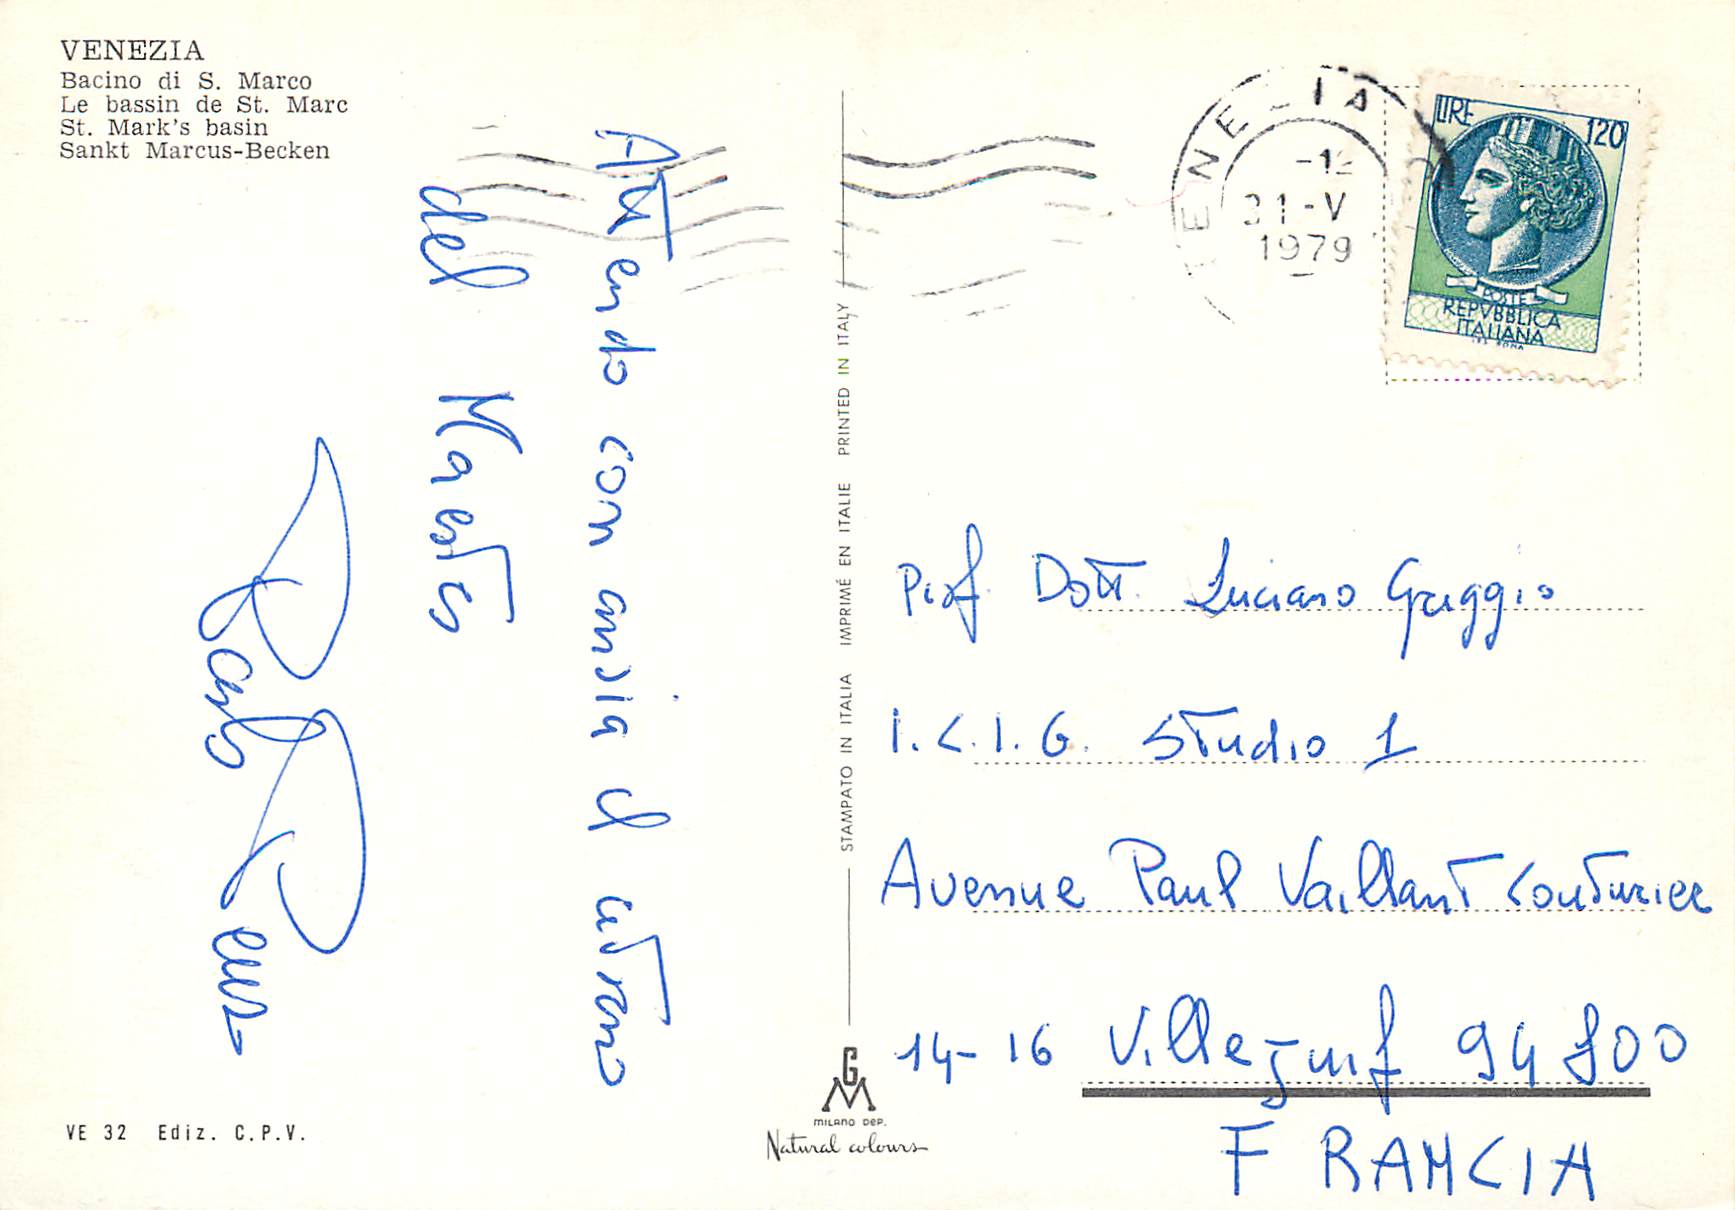 VENEZIA
Bacino di S. Marco
Le bassin de St. Marc
St. Mark's basin
Sankt Marcus-Becken
Attendo con ansia il ritorno
del Maestro
Carlo
VENEZIA
-12
31-V
1979
LIRE 120
POSTE
REPVBBLICA
ITALIANA
I.P.S. ROMA
STAMPATO IN ITALIA IMPRIMÉ EN ITALIE PRINTED IN ITALY
Prof. Dott. Luciano Griggio
I.C.I.G. Studio 1
Avenue Paul Vaillant Couturier
14-16 Villejuif 94800
FRANCIA
VE 32 Ediz. C.P.V.
GM
MILANO DEP.
Natural colours